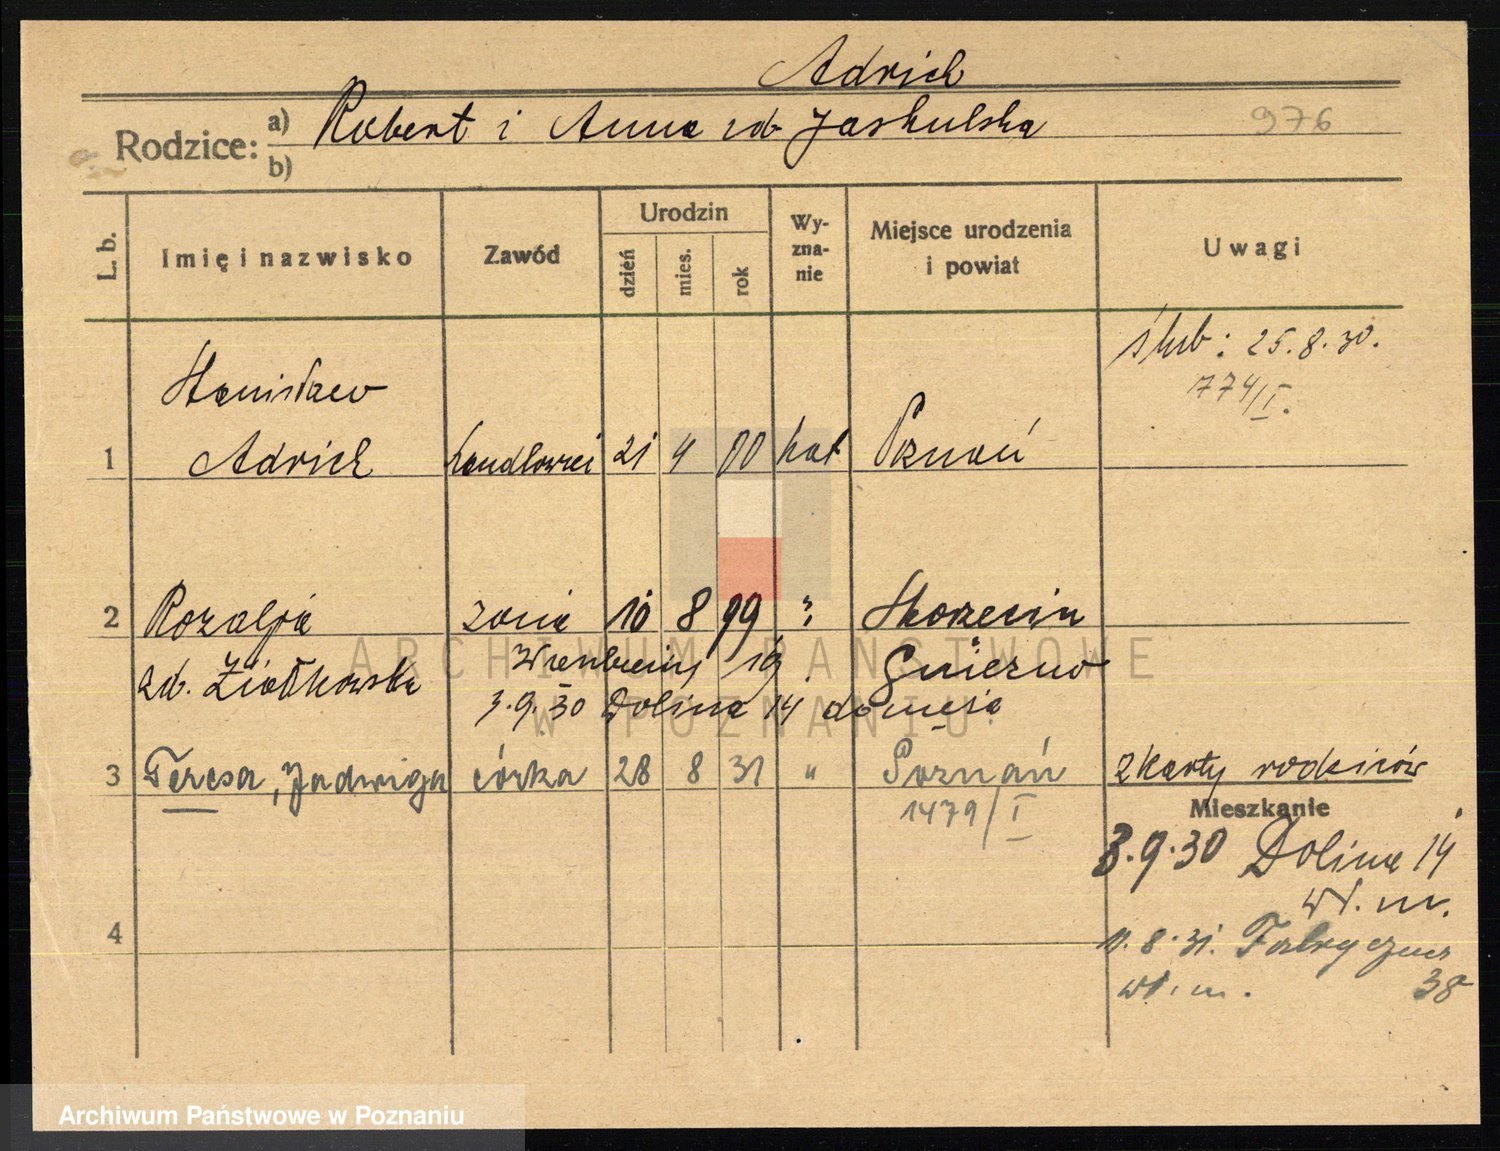 Adrich
Rodzice: a) Robert i Anna zd. Jaskulska 976
b)
L. b. Imię i nazwisko Zawód Urodzin dzień mies. rok Wy-zna-nie Miejsce urodzenia i powiat Uwagi
ślub: 25.8.30.
774/I.
Stanisław
1 Adrich handlowiec 21 4 00 kat Poznań
2 Rozalja żona 10 8 99 " Skorzęcin
zd. Ziółkowska 19. Gniezno
3.9.30 Dolina 14
3 Teresa, Jadwiga córka 28 8 31 " Poznań z karty rodziców
1479/I
Mieszkanie
3.9.30 Dolina 14
wł. m.
4
11.8.31. Fabryczna
38
wł. m.
ARCHIWUM PAŃSTWOWE
W POZNANIU
Archiwum Państwowe w Poznaniu